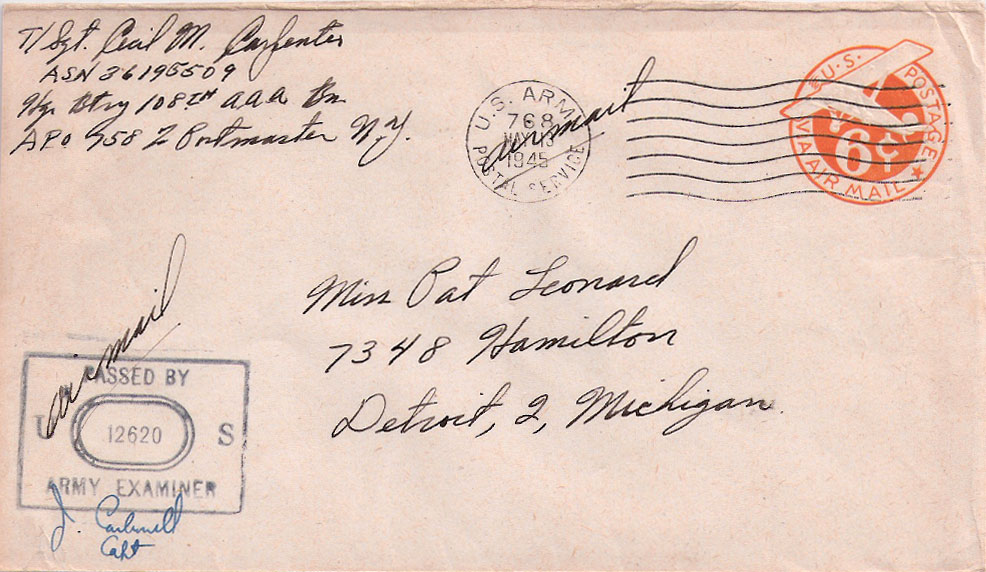 T/Sgt. Cecil M. Carpenter
ASN 36195509
Hq. Btry 108TH AAA Bn
APO 758 % Postmaster N.Y.
U.S. ARMY
768
MAY 13
1945
POSTAL SERVICE
airmail
U.S. POSTAGE
6¢
VIA AIR MAIL
Miss Pat Leonard
7348 Hamilton
Detroit, 2, Michigan
airmail
PASSED BY
U 12620 S
ARMY EXAMINER
J.
Capt